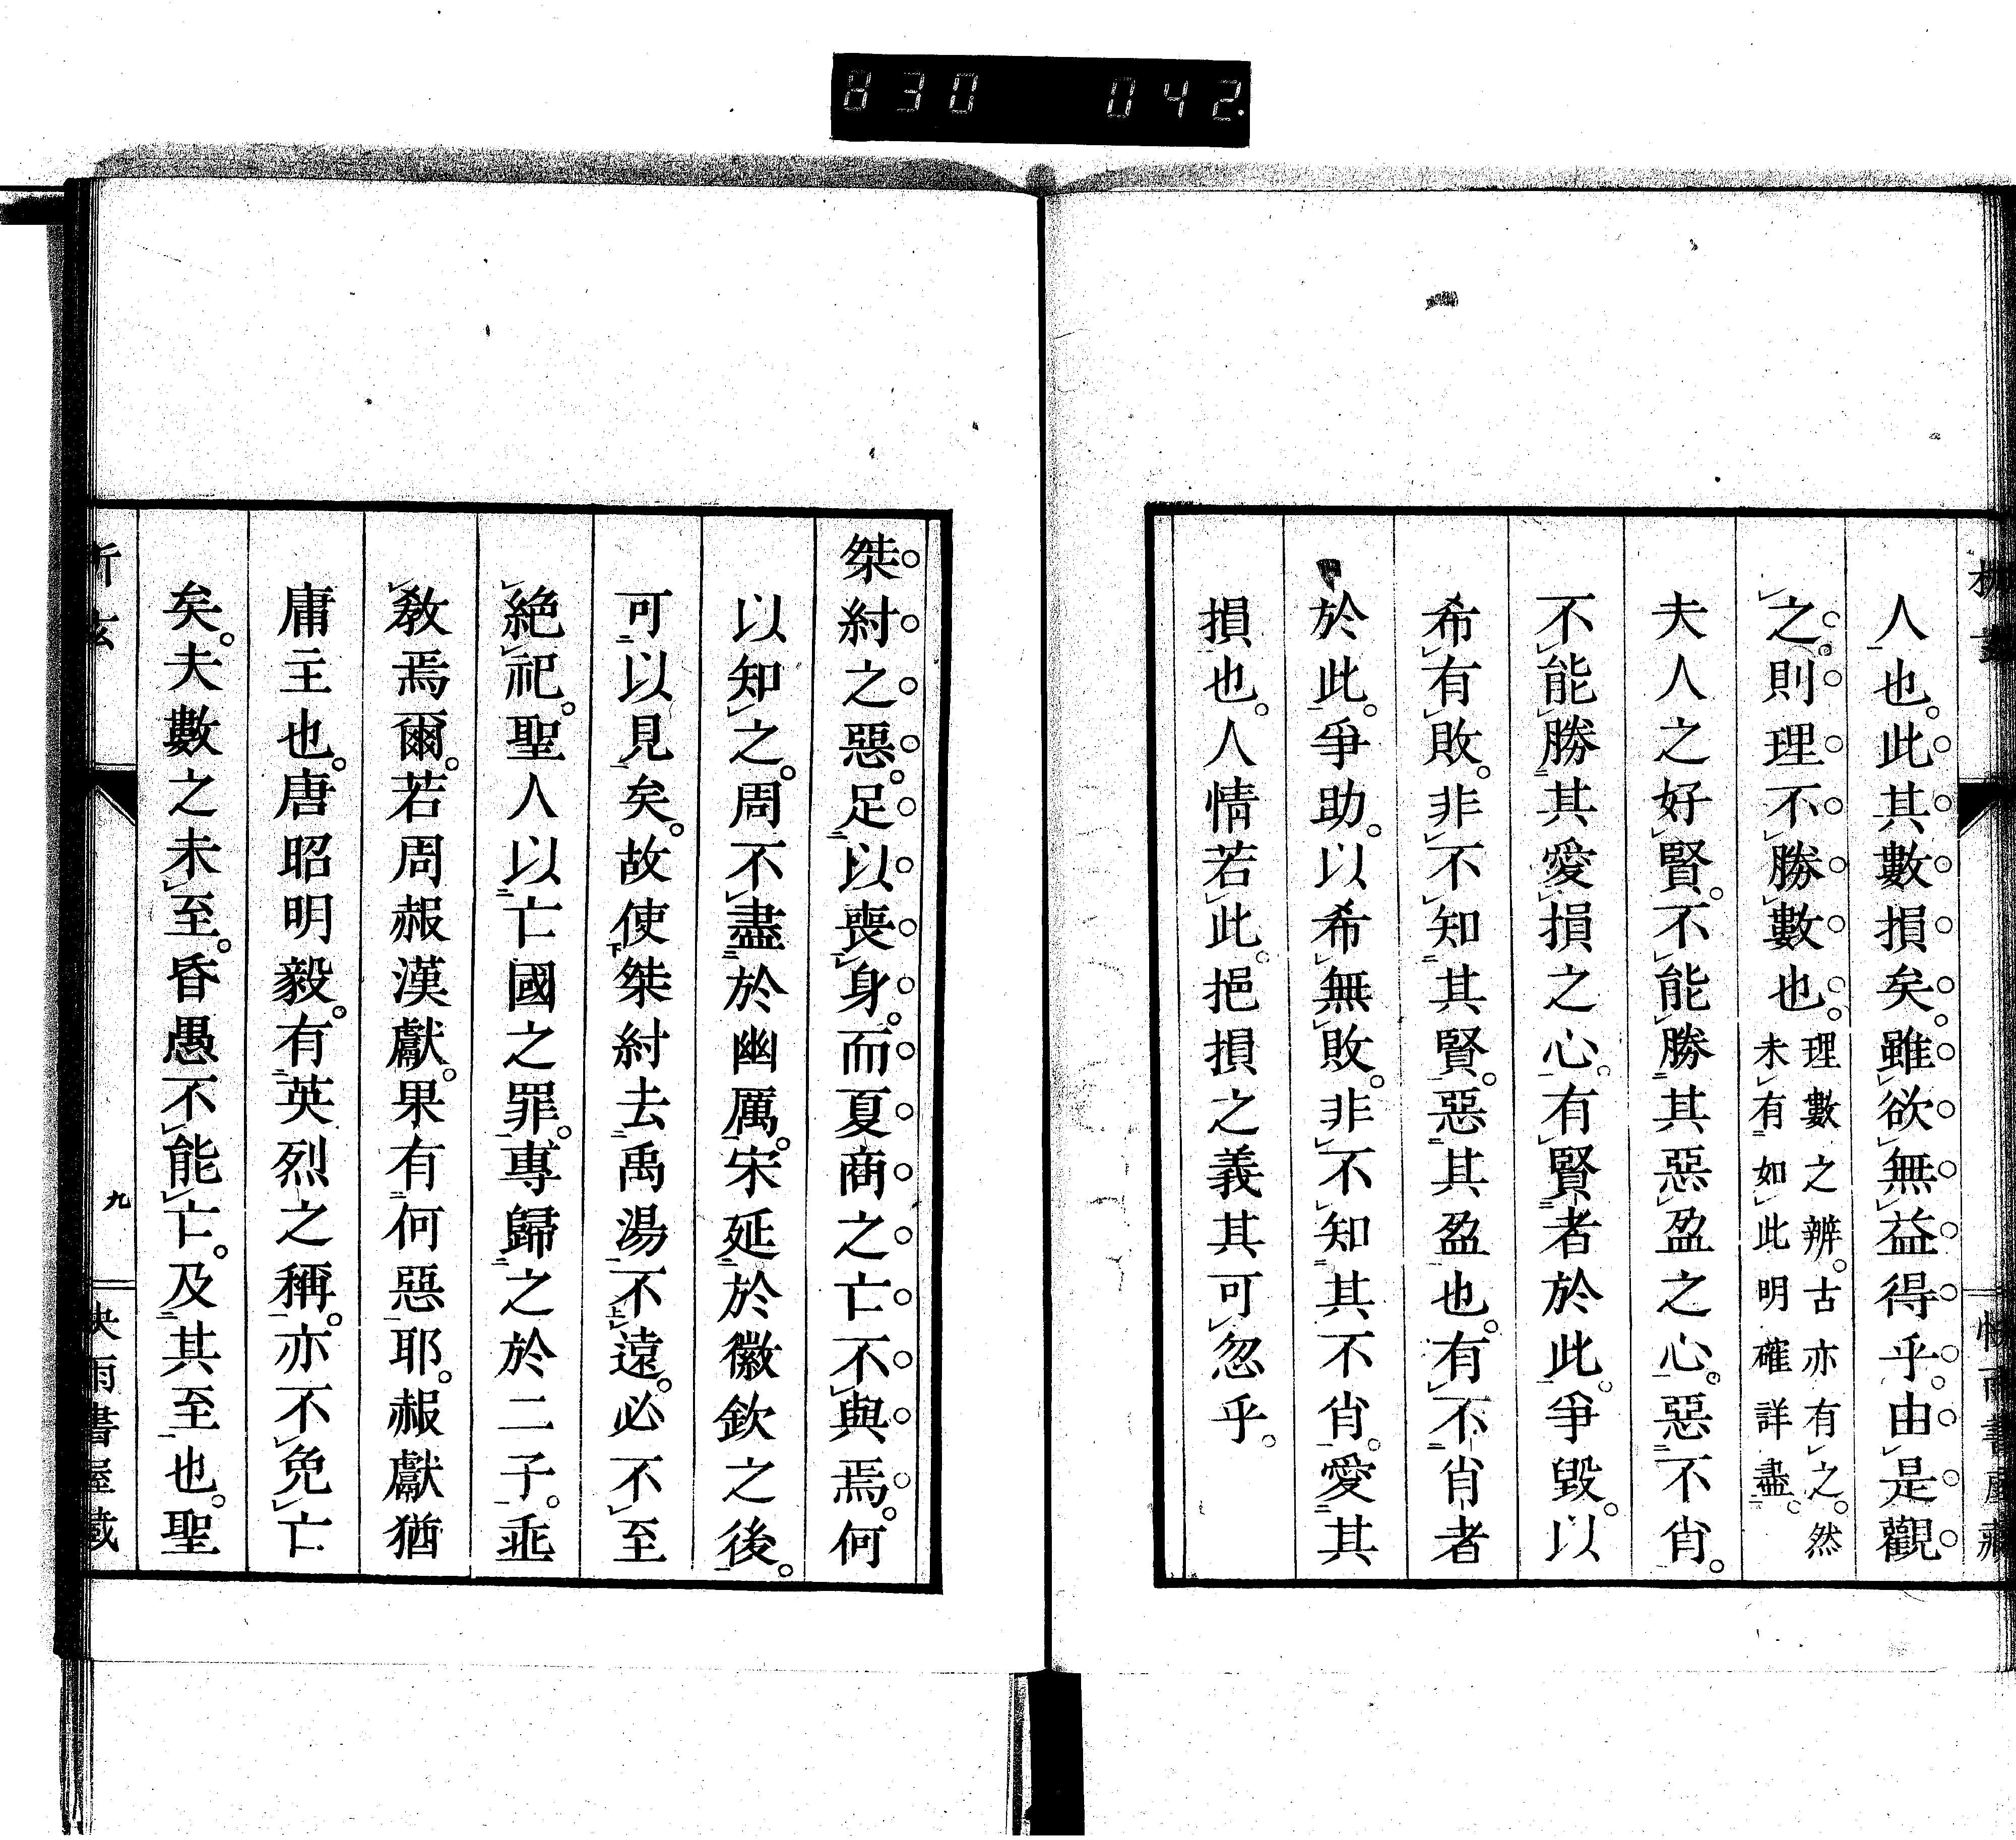 830 042.
人也。此其數損矣。雖欲無益得乎。由是觀
之。則理不勝數也。理數之辨。古亦有之。然
未有如此明確詳盡。
夫人之好賢。不能勝其惡盈之心。惡不肖。
不能勝其愛損之心。有賢者於此。爭毀。以
希有敗。非不知其賢。惡其盈也。有不肖者
於此。爭助。以希無敗。非不知其不肖。愛其
損也。人情若此。挹損之義其可忽乎。
桀紂之惡。足以喪身。而夏商之亡不與焉。何
以知之。周不盡於幽厲。宋延於徽欽之後。
可以見矣。故使桀紂去禹湯不遠。必不至
絕祀。聖人以亡國之罪。專歸之於二子。垂
教焉爾。若周赧漢獻。果有何惡耶。赧獻猶
庸主也。唐昭明毅。有英烈之稱。亦不免亡
矣。夫數之未至。昏愚不能亡。及其至也。聖
九
快雨書屋藏